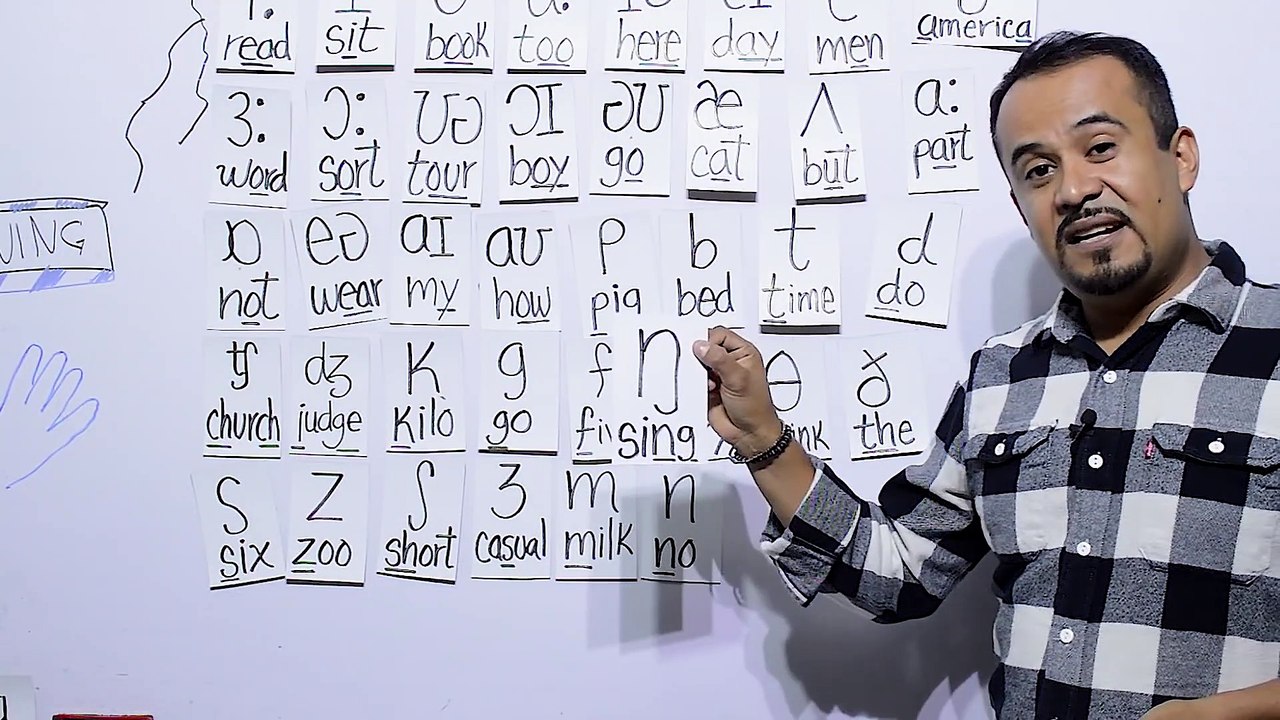 read sit book too here day men america
ɜ: ɔ: ʊə ɔɪ əʊ æ ʌ ɑ:
word sort tour boy go cat but part
ɒ eə aɪ aʊ p b t d
not wear my how pig bed time do
tʃ dʒ k g f ŋ θ ð
church judge kilo go sing the
s z ʃ ʒ m n
six zoo short casual milk no